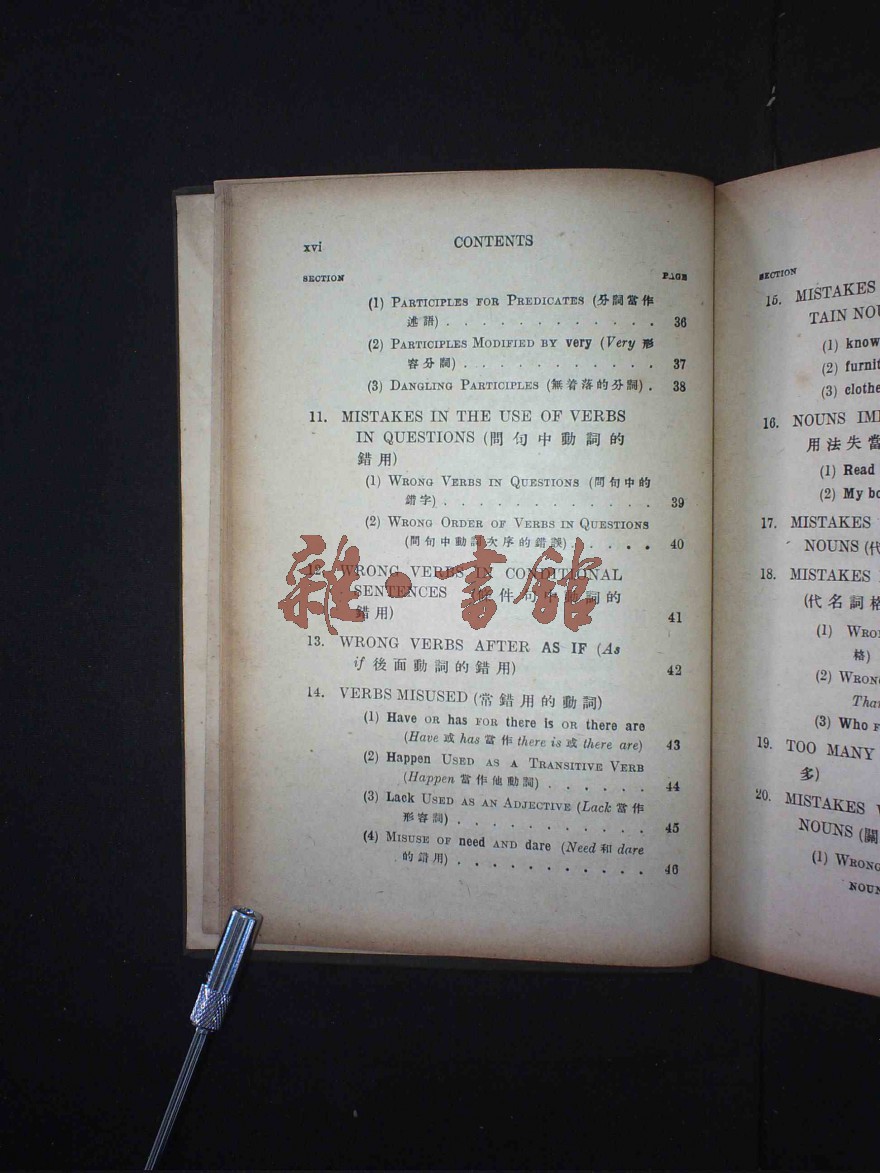 xvi
CONTENTS
SECTION
PAGE
(1) PARTICIPLES FOR PREDICATES (分詞當作
述語) . . . . . . . . . . . . 36
(2) PARTICIPLES MODIFIED BY very (Very 形
容分詞) . . . . . . . . . . . 37
(3) DANGLING PARTICIPLES (無着落的分詞) . 38
11. MISTAKES IN THE USE OF VERBS
IN QUESTIONS (問句中動詞的
錯用)
(1) WRONG VERBS IN QUESTIONS (問句中的
錯字) . . . . . . . . . . . . 39
(2) WRONG ORDER OF VERBS IN QUESTIONS
(問句中動詞次序的錯誤) . . . . . 40
12. WRONG VERBS IN CONDITIONAL
SENTENCES (條件句中動詞的
錯用) 41
13. WRONG VERBS AFTER AS IF (As
if 後面動詞的錯用) 42
14. VERBS MISUSED (常錯用的動詞)
(1) Have OR has FOR there is OR there are
(Have 或 has 當作 there is 或 there are) 43
(2) Happen USED AS A TRANSITIVE VERB
(Happen 當作他動詞) . . . . . . 44
(3) Lack USED AS AN ADJECTIVE (Lack 當作
形容詞) . . . . . . . . . . . 45
(4) MISUSE OF need AND dare (Need 和 dare
的錯用) . . . . . . . . . . . 46
雜·書館
SECTION
15. MISTAKES
TAIN NOU
(1) know
(2) furnit
(3) clothe
16. NOUNS IMI
用法失當
(1) Read
(2) My bo
17. MISTAKES
NOUNS (代
18. MISTAKES
(代名詞格
(1) WRON
格)
(2) WRONG
Than
(3) Who F
19. TOO MANY
多)
20. MISTAKES
NOUNS (關
(1) WRONG
NOUN